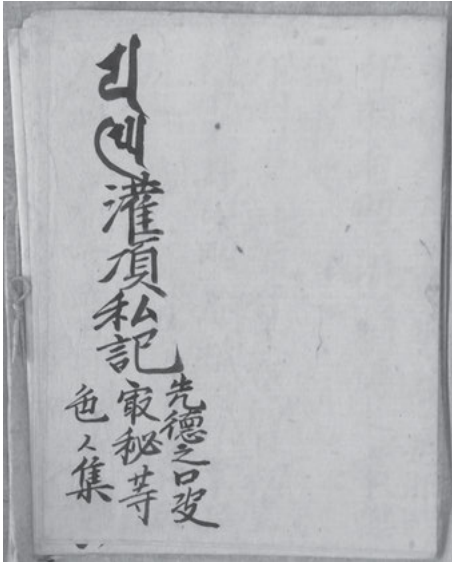 灌頂私記
先德之口
㝡秘等
色々集